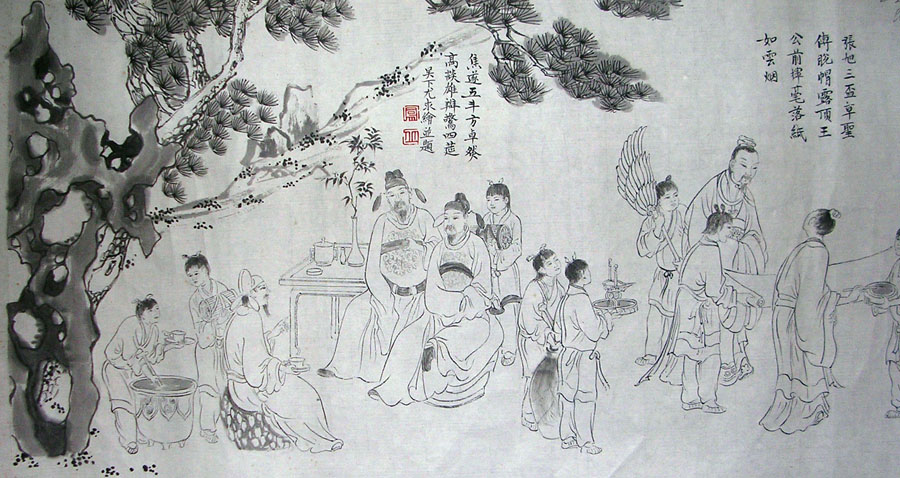 張旭三盃草聖
傳脫帽露頂王
公前揮毫落紙
如雲烟
焦遂五斗方卓然
高談雄辯驚四筵
吳下尤求繪並題